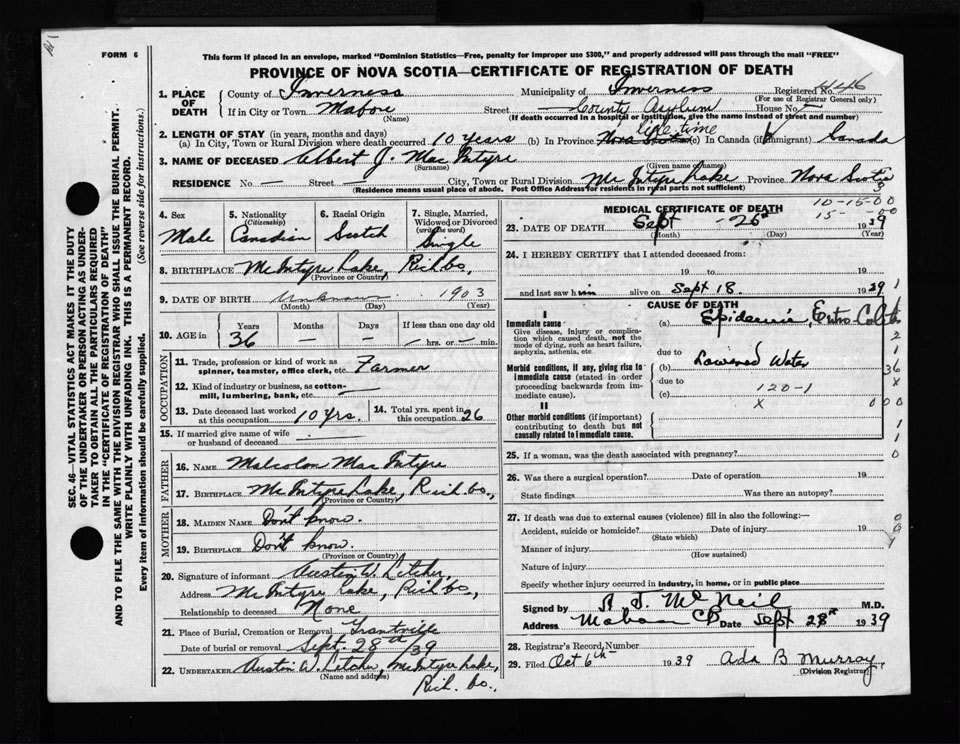 FORM 6
This form if placed in an envelope, marked "Dominion Statistics—Free, penalty for improper use $300," and properly addressed will pass through the mail "FREE"
PROVINCE OF NOVA SCOTIA—CERTIFICATE OF REGISTRATION OF DEATH
SEC. 46—VITAL STATISTICS ACT MAKES IT THE DUTY
OF THE UNDERTAKER OR PERSON ACTING AS UNDER-
TAKER TO OBTAIN ALL THE PARTICULARS REQUIRED
IN THE "CERTIFICATE OF REGISTRATION OF DEATH"
AND TO FILE THE SAME WITH THE DIVISION REGISTRAR WHO SHALL ISSUE THE BURIAL PERMIT.
WRITE PLAINLY WITH UNFADING INK. THIS IS A PERMANENT RECORD.
Every item of information should be carefully supplied. (See reverse side for instructions.)
1. PLACE OF DEATH County of Inverness Municipality of Inverness Registered No. 446
(For use of Registrar General only)
If in City or Town Mabou Street County Asylum House No. –
(Name) (If death occurred in a hospital or institution, give the name instead of street and number)
2. LENGTH OF STAY (in years, months and days)
(a) In City, Town or Rural Division where death occurred 10 years (b) In Province Nova Scotia life time (c) In Canada (if immigrant) Canada
3. NAME OF DECEASED Albert J. MacIntyre
(Surname) (Given name or names)
RESIDENCE No. – Street – City, Town or Rural Division McIntyre Lake Province Nova Scotia
(Residence means usual place of abode. Post Office Address for residents in rural parts not sufficient)
3
4. Sex Male
5. Nationality (Citizenship) Canadian
6. Racial Origin Scotch
7. Single, Married, Widowed or Divorced (write the word) Single
8. BIRTHPLACE McIntyre Lake, Rich Co,
(Province or Country)
9. DATE OF BIRTH Unknown 1903
(Month) (Day)
10. AGE in Years 36 Months – Days – If less than one day – hrs. or – min.
OCCUPATION
11. Trade, profession or kind of work as spinner, teamster, office clerk, etc. Farmer
12. Kind of industry or business, as cotton-mill, lumbering, bank, etc. –
13. Date deceased last worked at this occupation 10 yrs.
14. Total yrs. spent in this occupation 26
15. If married give name of wife or husband of deceased –
FATHER
16. NAME Malcolm MacIntyre
17. BIRTHPLACE McIntyre Lake, Rich Co.,
(Province or Country)
MOTHER
18. MAIDEN NAME Don't know.
19. BIRTHPLACE Don't know.
(Province or Country)
20. Signature of informant Austin W. Letcher,
Address McIntyre Lake, Rich Co,
Relationship to deceased None
21. Place of Burial, Cremation or Removal Grantville
Date of burial or removal Sept. 28th/39
22. UNDERTAKER Austin W. Letcher, McIntyre Lake,
(Name and address)
Rich. Co.
MEDICAL CERTIFICATE OF DEATH
10-15-00
15-
23. DATE OF DEATH Sept - 26 1939
(Month) (Day) (Year)
24. I HEREBY CERTIFY that I attended deceased from:
19 to 19
and last saw him alive on Sept 18. 1939
CAUSE OF DEATH
I
Immediate cause (a) Epidemic Entro Colitis
Give disease, injury or complication which caused death, not the mode of dying, such as heart failure, asphyxia, asthenia, etc
due to
Morbid conditions, if any, giving rise to immediate cause (stated in order proceeding backwards from immediate cause). (b) Lowered Water
due to
(c) 120-1
X 000
II
Other morbid conditions (if important) contributing to death but not causally related to immediate cause.
25. If a woman, was the death associated with pregnancy?
26. Was there a surgical operation? Date of operation 19
State findings Was there an autopsy?
27. If death was due to external causes (violence) fill in also the following:—
Accident, suicide or homicide? Date of injury 19
(State which)
Manner of injury
(How sustained)
Nature of injury
Specify whether injury occurred in industry, in home, or in public place
Signed by A. J. McNeil M.D.
Address Mabou CB Date Sept 28th 1939
28. Registrar's Record Number
29. Filed Oct 6th 1939 Ada B Murray,
(Division Registrar)